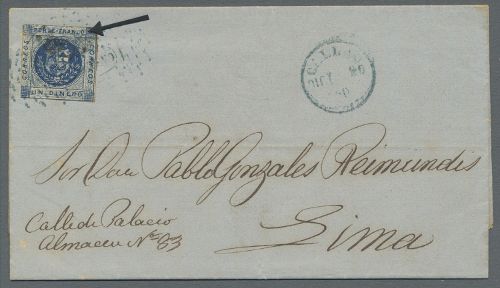 PORTE FRANCO
CORREOS
CORREOS
UN DINERO
CALLAO
26
Sor Don Pablo Gonzales Reimundis
Calle de Palacio
Almacen No 83
Lima